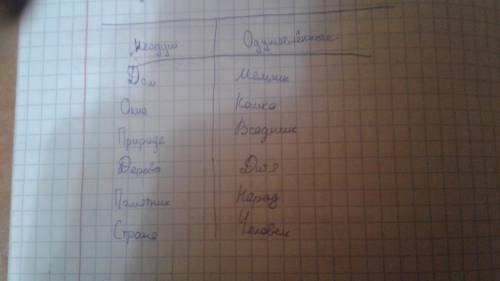 Неодуш Одушевлённые
Дом Мельник
Окно Кошка
Природа Всадник
Дерево Дитя
Памятник Народ
Страна Человек